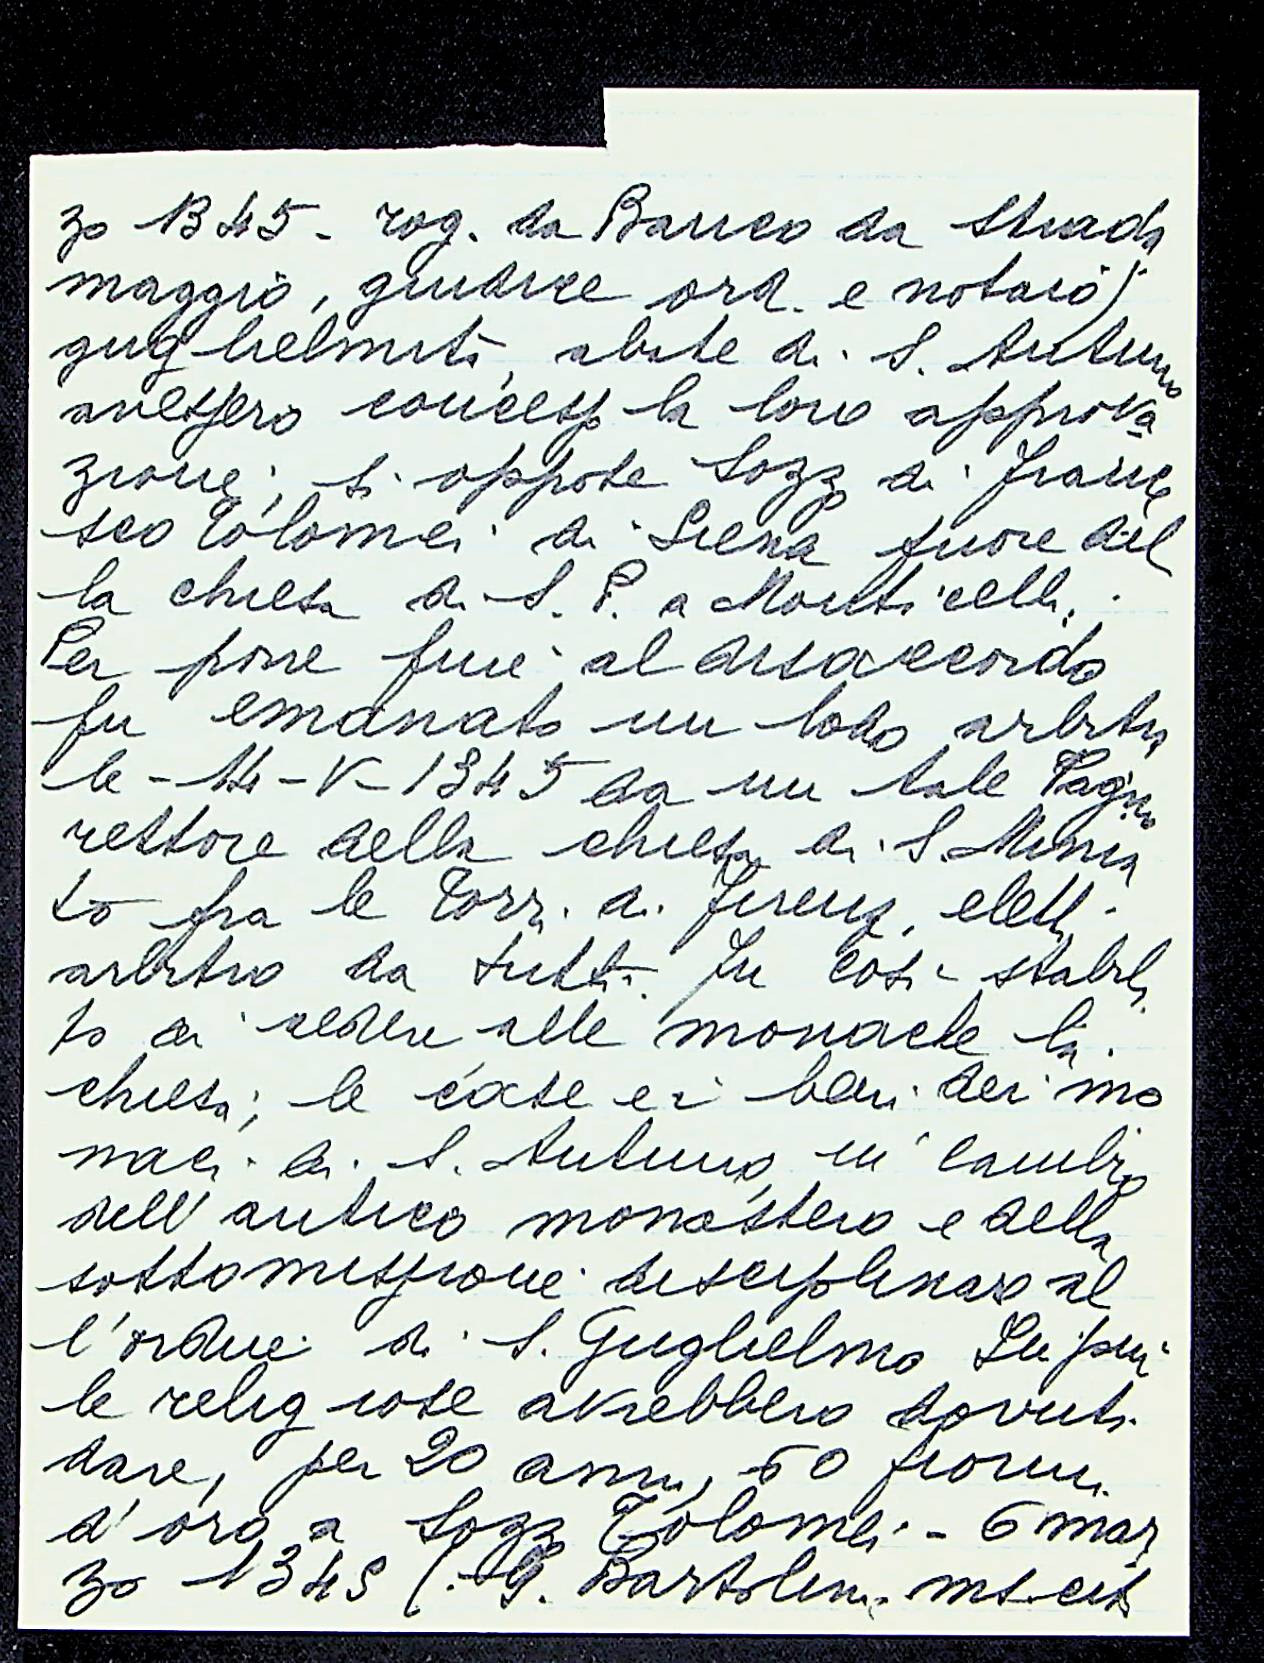 zo 1345 - rog. da Banco da Strada
maggio, giudice ord. e notaio)
guglielmiti, abate di S. Antimo
avessero concesso la loro approva
zione, si oppose Sozzo di France
sco Tolomei di Siena fuore del
la chiesa di S. P. a Monticelli.
Per porre fine al disaccordo
fu emanato un lodo arbitra
le - 14 - V - 1345 da un tale Pagno
rettore della chiesa di S. Minia
to fra le Torri di Firenze, eletto
arbitro da tutti. Fu così stabili
to di cedere alle monache la
chiesa, le case e i beni dei mo
naci di S. Antimo, in cambio
dell'antico monastero e della
sottomissione disciplinare al
l'ordine di S. Guglielmo
le religiose avrebbero dovuto
dare, per 20 anni, 50 fiorini
d'oro a Sozzo Tolomei - 6 mar
zo 1345 (. G. Bartolini ms. cit